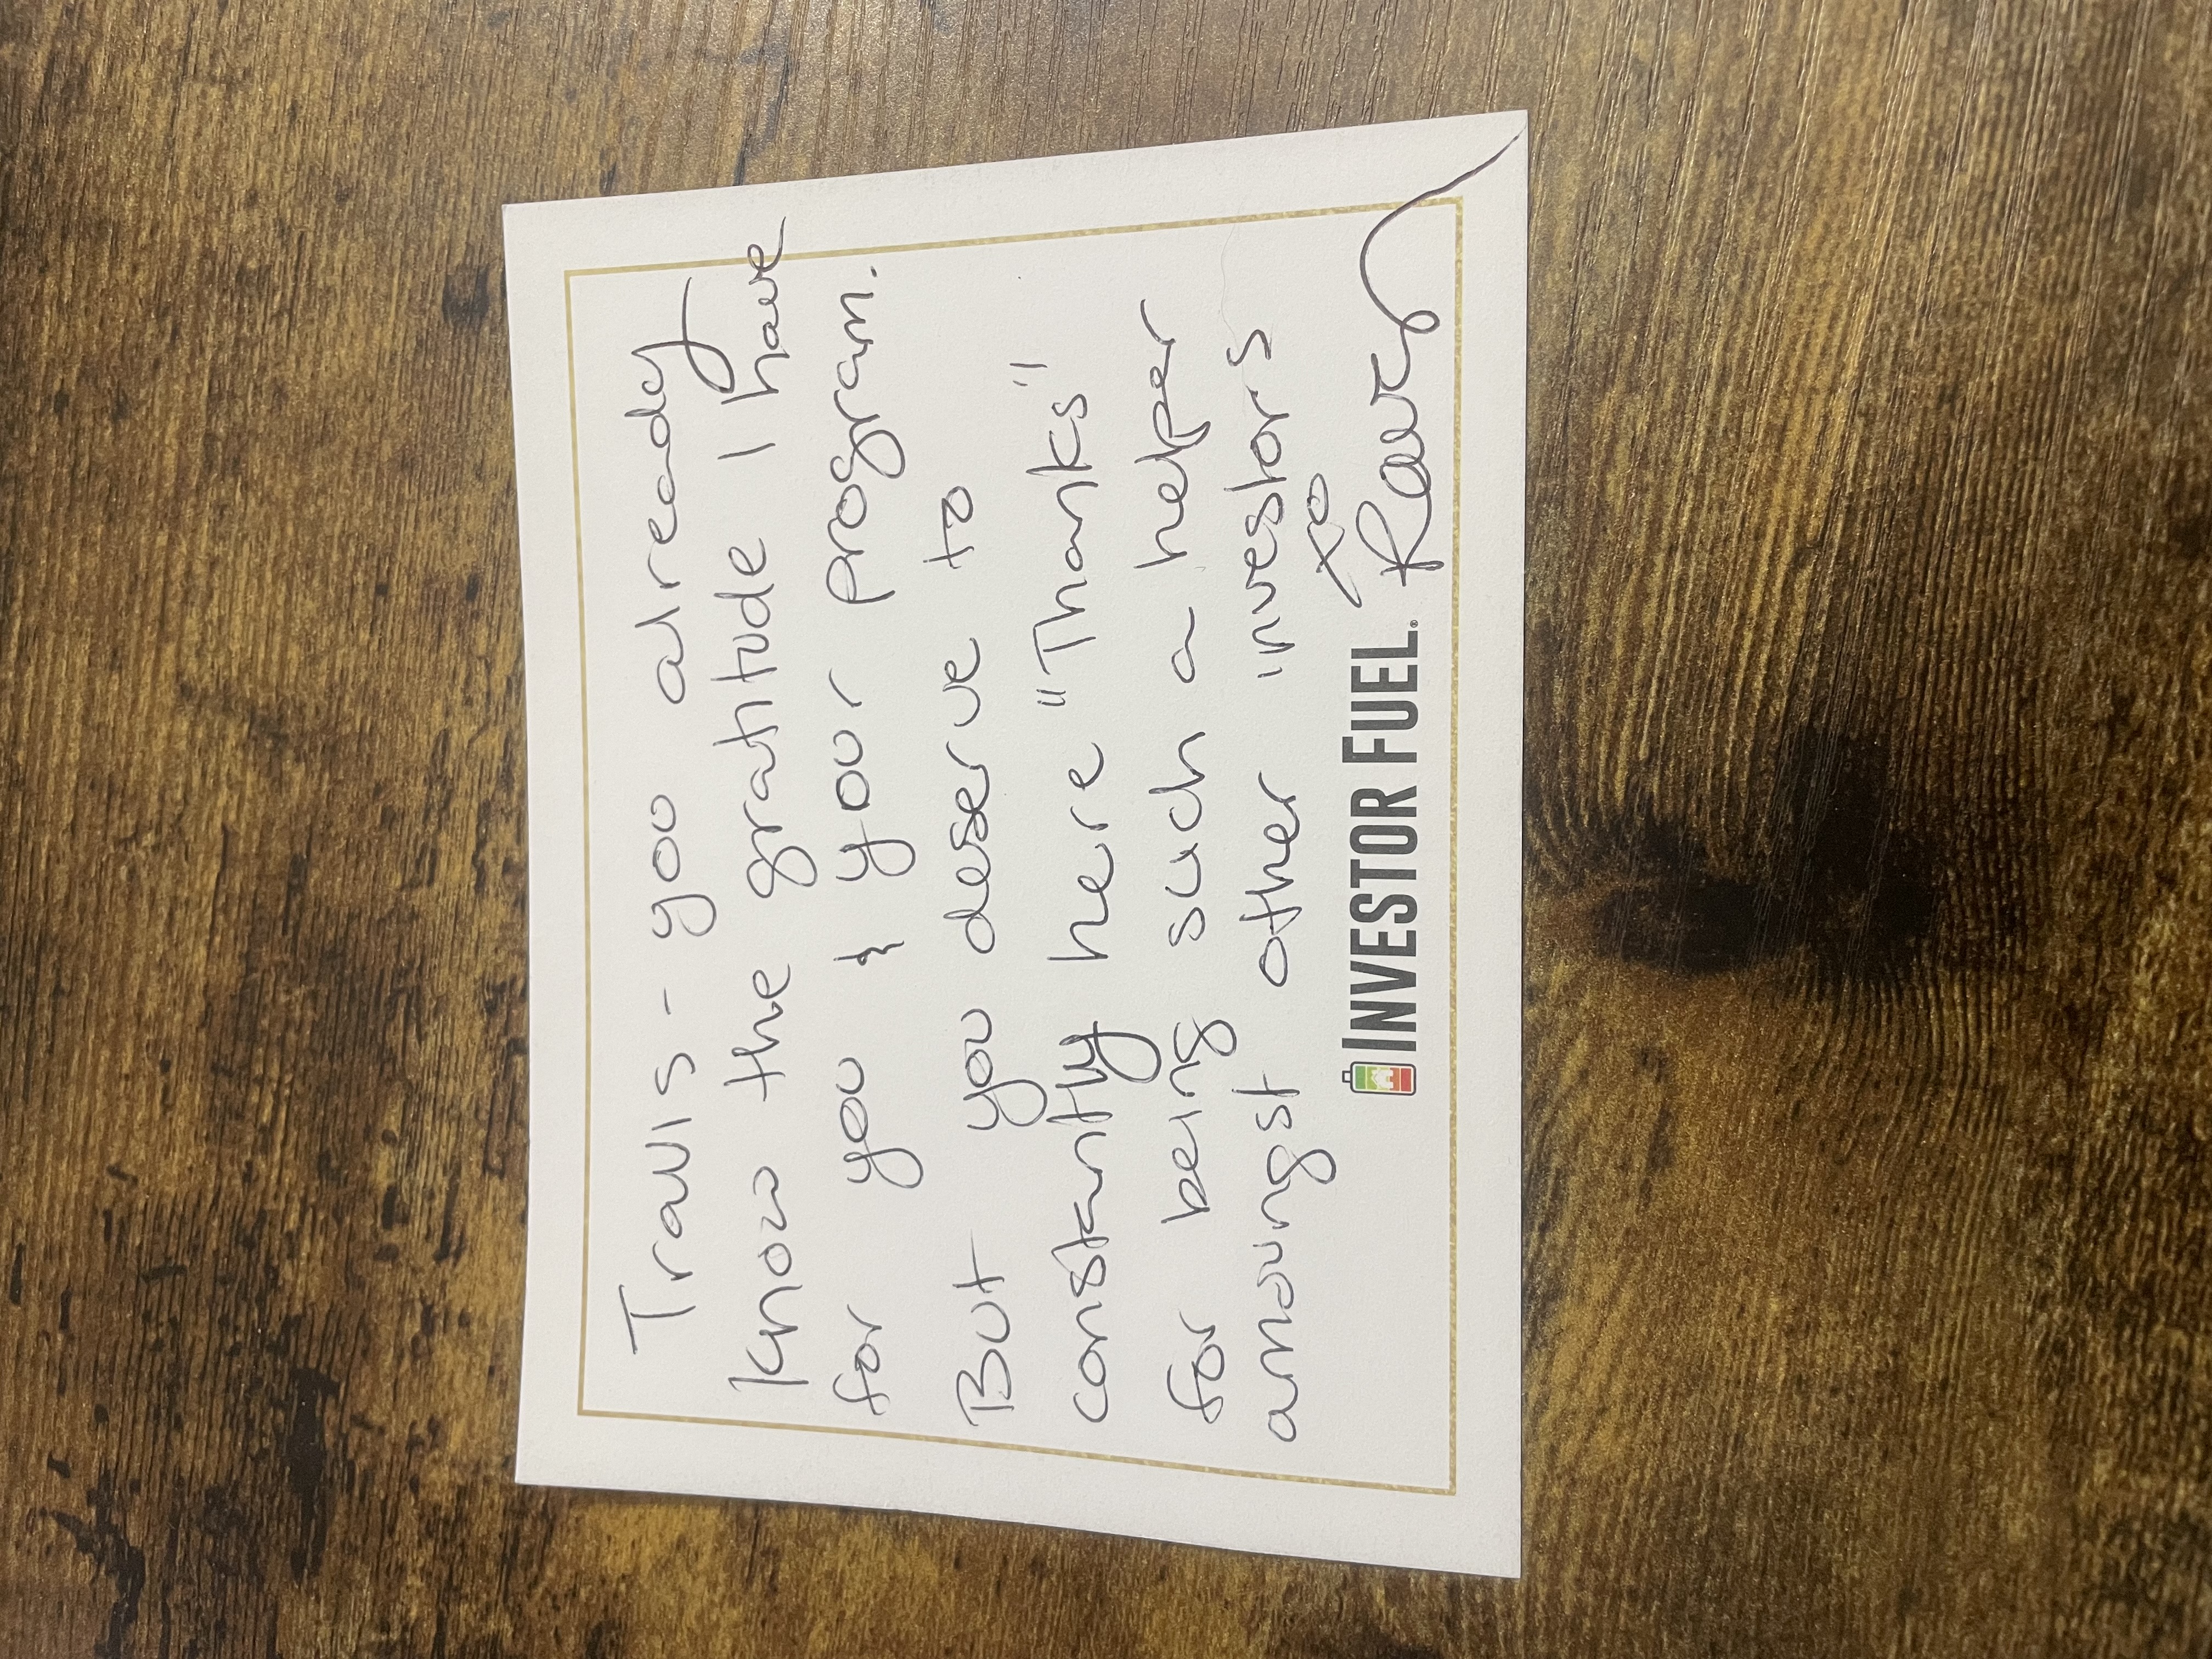 Travis - you already
know the gratitude I have
for you & your program.
But you deserve to
constantly here "Thanks"!
for being such a helper
amoungst other investors
xo
INVESTOR FUEL®